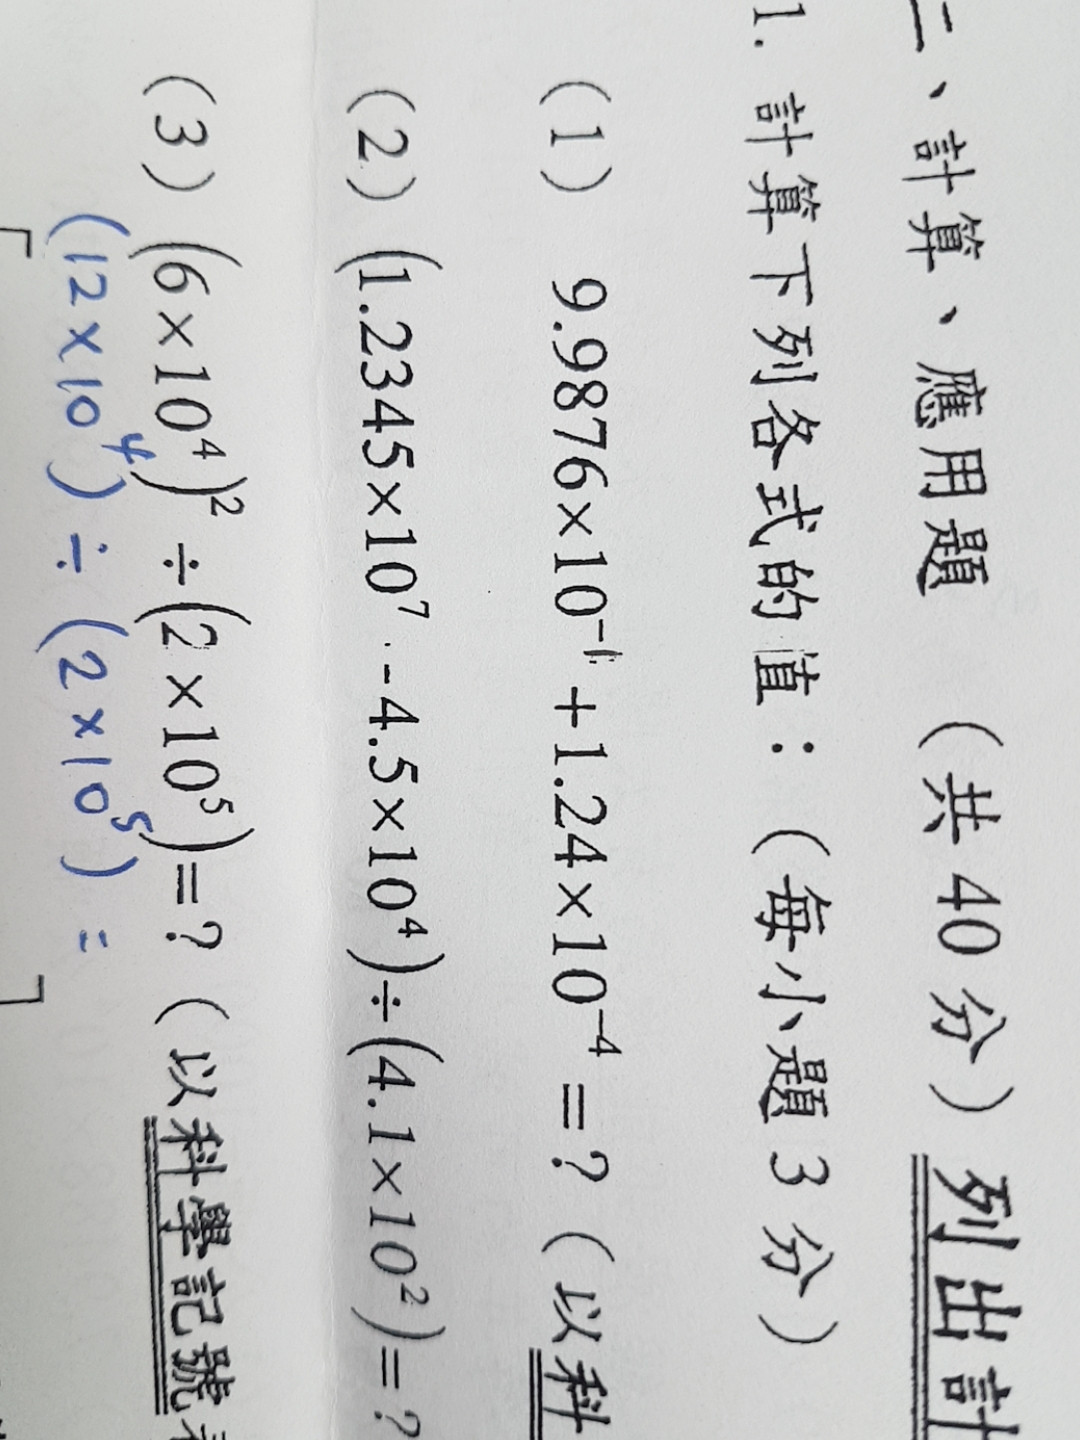 二、計算、應用題 （共 40 分）列出計
1. 計算下列各式的值：（每小題 3 分）
（1） 9.9876×10⁻¹+1.24×10⁻⁴ =？（以科
（2）(1.2345×10⁷ -4.5×10⁴)÷(4.1×10²)=？
（3）(6×10⁴)²÷(2×10⁵)=？（以科學記號
(12×10⁴)÷(2×10⁵) =